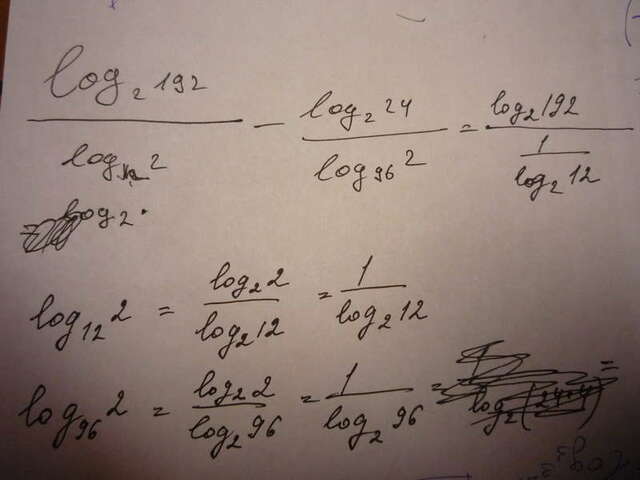 log₂192 / log₁₂2 − log₂24 / log₉₆2 = log₂192 / (1 / log₂12)
log₂
log₁₂2 = log₂2 / log₂12 = 1 / log₂12
log₉₆2 = log₂2 / log₂96 = 1 / log₂96 =